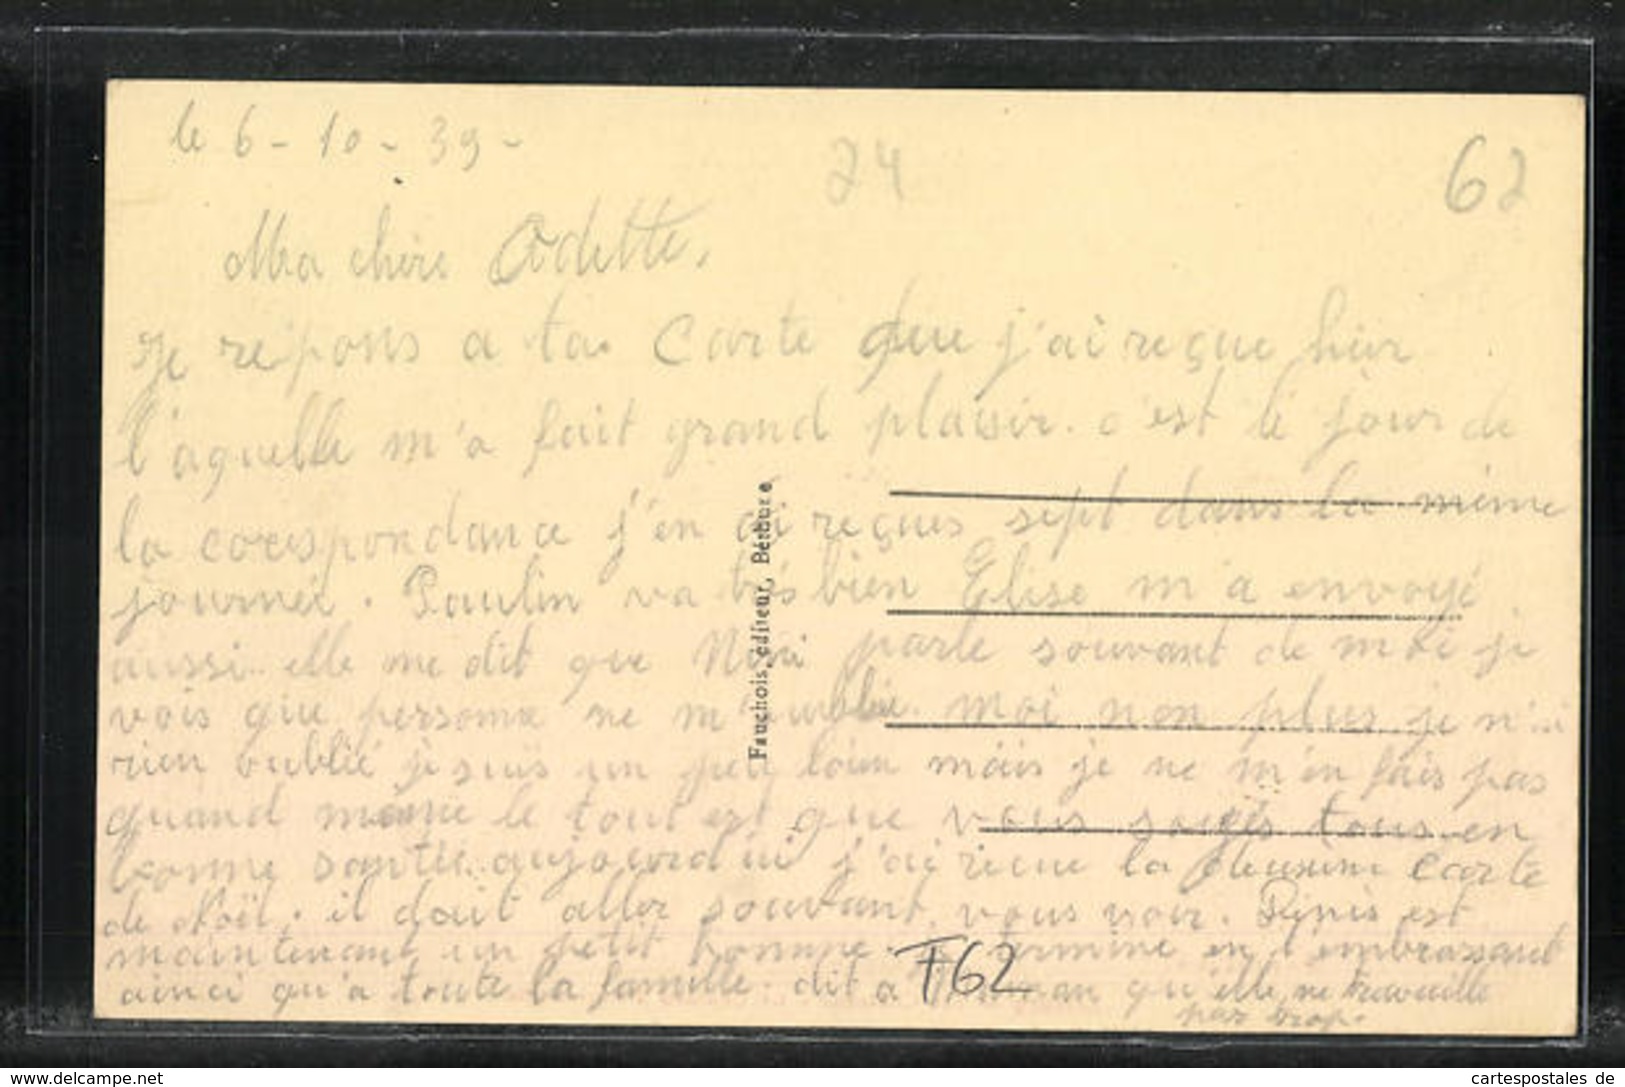 le 6-10-39-
24
62
Ma chère Odette,
je répons a ta carte que j'ai reçue hier
l'aquelle m'a fait grand plaisir. c'est le jour de
la corespondance j'en ai reçues sept dans la même
journée. Paulin va très bien Elise m'a envoyé
aussi elle me dit que Nini parle souvant de moi je
vois que personne ne m'oublie. moi non plus je n'ai
rien oublié je suis un peu loin mais je ne m'en fais pas
quand même le tout est que vous soyés tous en
bonne santée aujourd ui j'ai reçue la deuxieme carte
de Noël. il doit aller souvant vous voir. Denis est
maintenant un petit homme. je termine en t'embrassant
ainci qu'a toute la famille. dit a Maman qu'elle ne travaille
pas trop.
F62
Fauchois, éditeur, Béthune
www.delcampe.net
cartespostales de